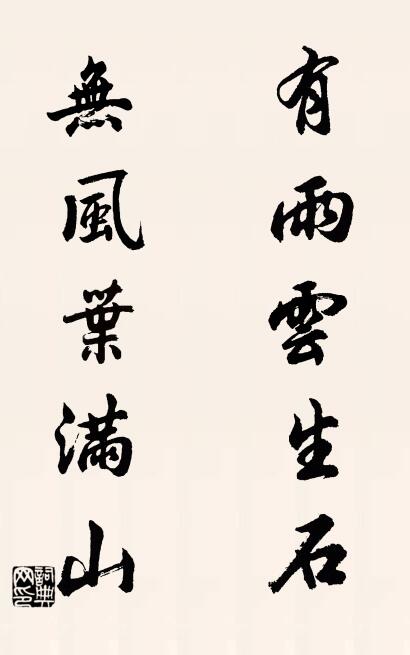 有雨雲生石
無風葉滿山
詞典网印